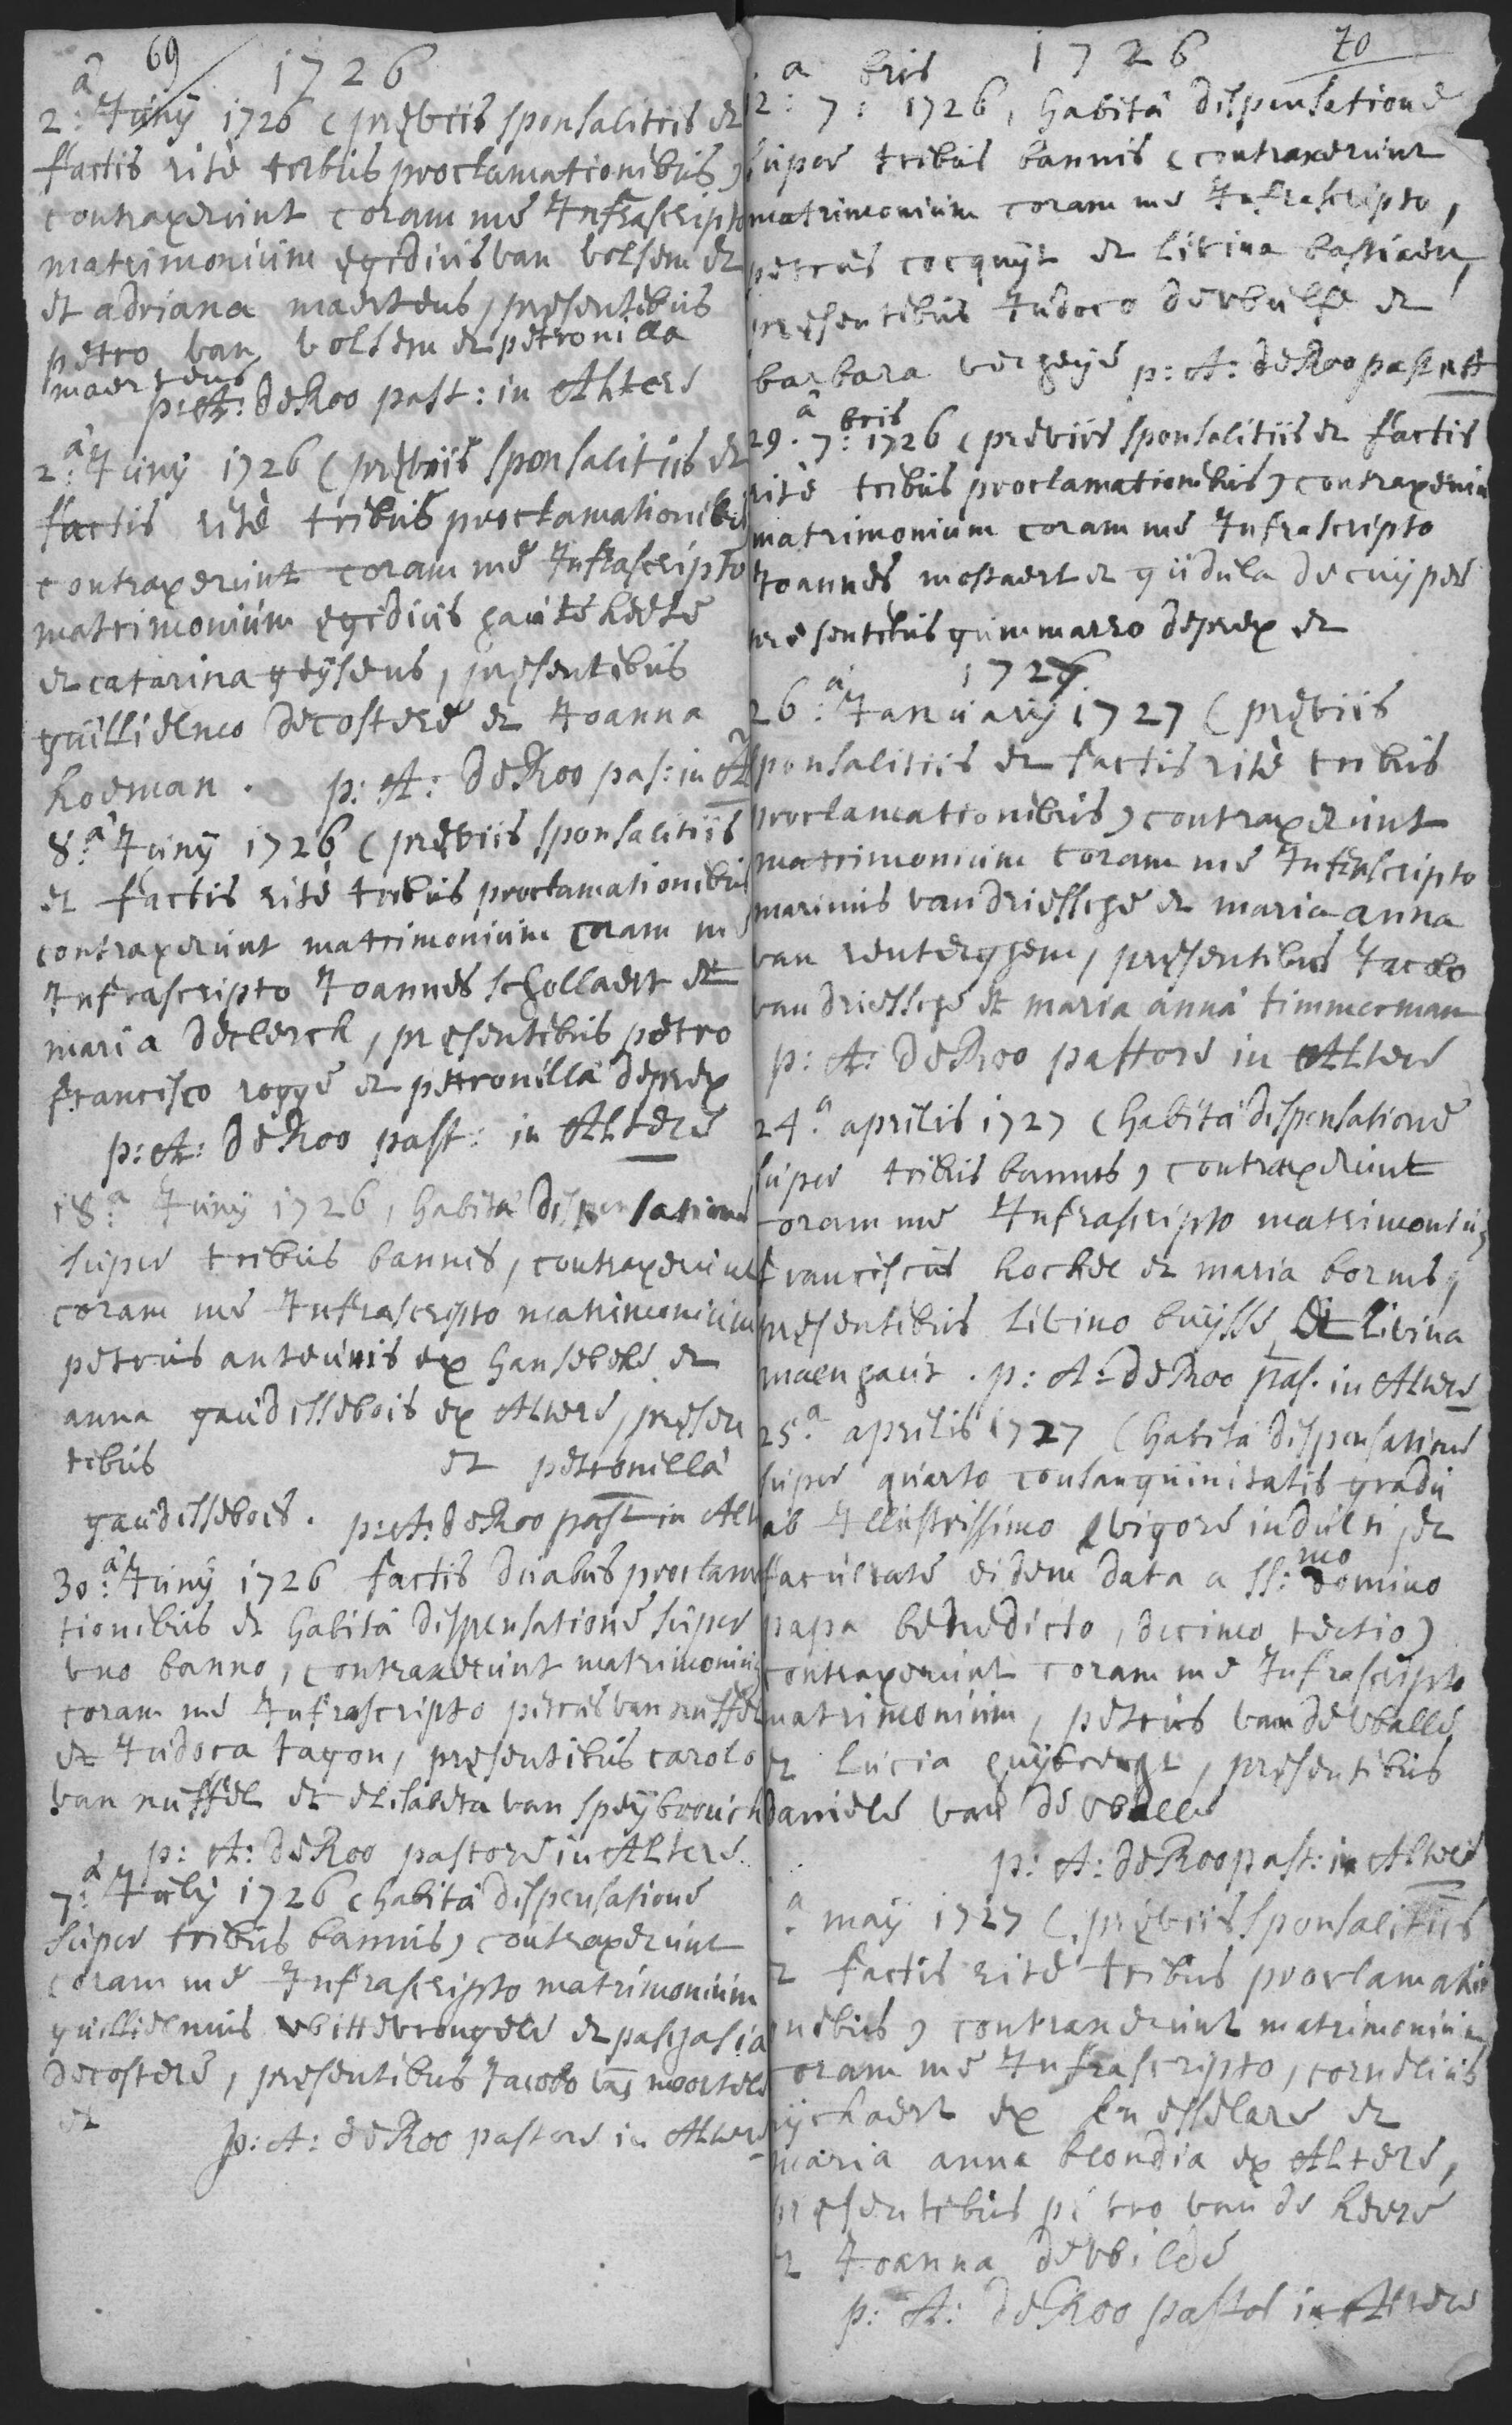 69
1726
2:a Juny 1726 (pręviis sponsalitiis et
factis ritè tribus proclamationibus)
contraxerunt coram me Infrascripto
matrimonium ęgidius van volsem et
et adriana maertens, pręsentibus
petro van volsem et petronilla
maertens
p: A: deRoo past: in Altere
2:a Juny 1726 (pręviis sponsalitiis et
factis ritè tribus proclamationibus
contraxerunt coram me Infrascripto
matrimonium ęgidius hautekeete
et catarina geysens, pręsentibus
guillielmo decostere et Joanna
hoeman. p: A: deRoo pas: in A
8:a Juny 1726 (pręviis sponsalitiis
et factis ritè tribus proclamationibus
contraxerunt matrimonium coram me
Infrascripto Joannes schollaert et
maria declerck, pręsentibus petro
francisco rogge et petronilla deprex
p: A: deRoo past: in Altere
18:a Juny 1726, habita dispensatione
super tribus bannis, contraxerunt
coram me Infrascripto matrimonium
petrus anteunis ex hansebeke et
anna gaudissebois ex Altere, pręsen
tibus et petronilla
gaudissebois. p: A: deRoo past in Alt
30:a Juny 1726 factis duabus proclama
tionibus et habita dispensatione super
uno banno, contraxerunt matrimonium
coram me Infrascripto petrus van nuffel
et Judoca tagon, pręsentibus carolo
van nuffel et elisabeta van speybrouck
p: A: deRoo pastore in Altere
7:a July 1726 (habita dispensatione
super tribus bannis) contraxerunt
coram me Infrascripto matrimonium
guillielmus wittevrongele et paschasia
decostere, pręsentibus Jacobo van moortele
et
p: A: deRoo pastore in Altere
1726
70
12:a 7:bris 1726, habita dispensatione
super tribus bannis (contraxerunt
matrimonium coram me Infrascripto,
petrus cocquyt et livina bastiaen,
pręsentibus Judoco dewulf et
barbara verheye p: A: deRoo past in A
29:a 7:bris 1726 (pręviis sponsalitiis et factis
ritè tribus proclamationibus) contraxerun
matrimonium coram me Infrascripto
Joannes mostaert et gudula decuyper
pręsentibus gummarro deprex et
1727
26:a January 1727 (pręviis
sponsalitiis et factis ritè tribus
proclamationibus) contraxerunt
matrimonium coram me Infrascripto
marinus vandriessche et maria anna
van renterghem, pręsentibus Jacobo
van driessche et maria anna timmerman
p: A: deRoo pastore in Altere
24:a aprilis 1727 (habita dispensatione
super tribus bannis) contraxerunt
coram me Infrascripto matrimonium
franciscus hockee et maria borms,
pręsentibus livino buysse et livina
maenhaut. p: A: deRoo pas. in Altere
25:a aprilis 1727 (habita dispensatione
super quarto consanguinitatis gradu
ab Illustrissimo vigore indulti, et
facultate eidem data a SS:mo domino
papa benedicto, decimo tertio)
contraxerunt coram me Infrascripto
matrimonium, petrus vandewalle
et lucia huybrecht, pręsentibus
daniele van dewalle
p: A: deRoo past: in Altere
a may 1727 (pręviis sponsalitiis
et factis ritè tribus proclamatio
nibus) contraxerunt matrimonium
coram me Infrascripto, cornelius
ryckaert ex knesselare et
maria anna blondia ex Altere,
pręsentibus petro van de keere
et Joanna dewilde
p: A: deRoo pastor in Altere